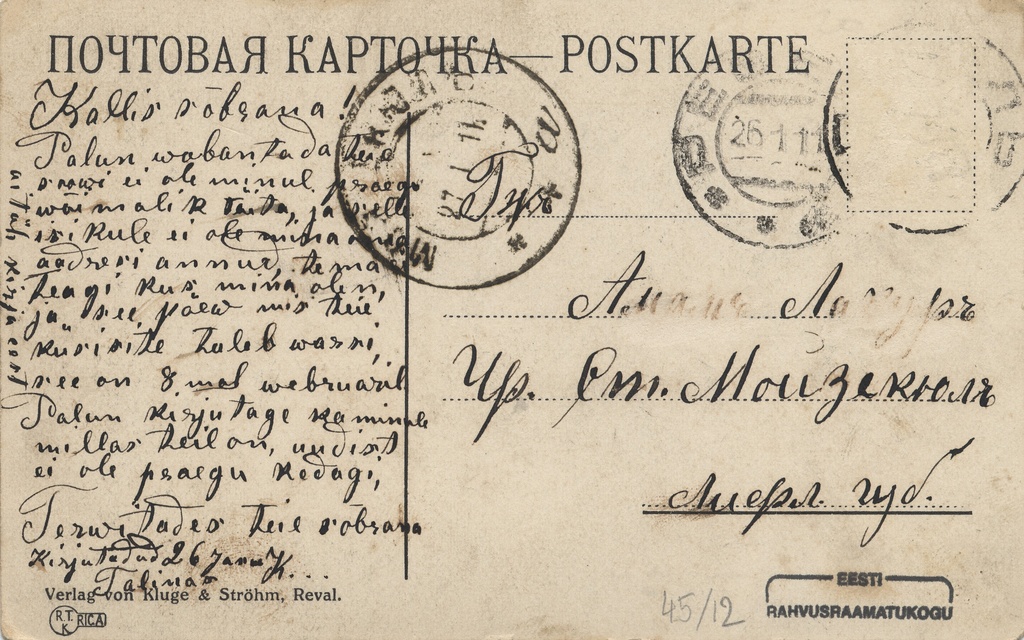 ПОЧТОВАЯ КАРТОЧКА — POSTKARTE
Kallis sõbrana!
Palun wabantada teie
soowi ei ole minul praegu
wõimalik täita, ja selle
isikule ei ole mina oma
aadresi annud, tema
teagi kus mina olen,
ja see päew mis teie
küsisite tuleb warsi,
see on 8 mal webruaril
Palun kirjutage kaminule
millas teil on, uudist
ei ole praegu kedagi,
Terwitades teie sõbrana
Kirjutadud 26 Janu K...
Talinas
aitäh kirja eest
26 1 11
27 1 11
Гжа
Ст. Мойзекюль
Лифл. губ.
Verlag von Kluge & Ströhm, Reval.
R.T.K. RIGA
45/12
EESTI
RAHVUSRAAMATUKOGU